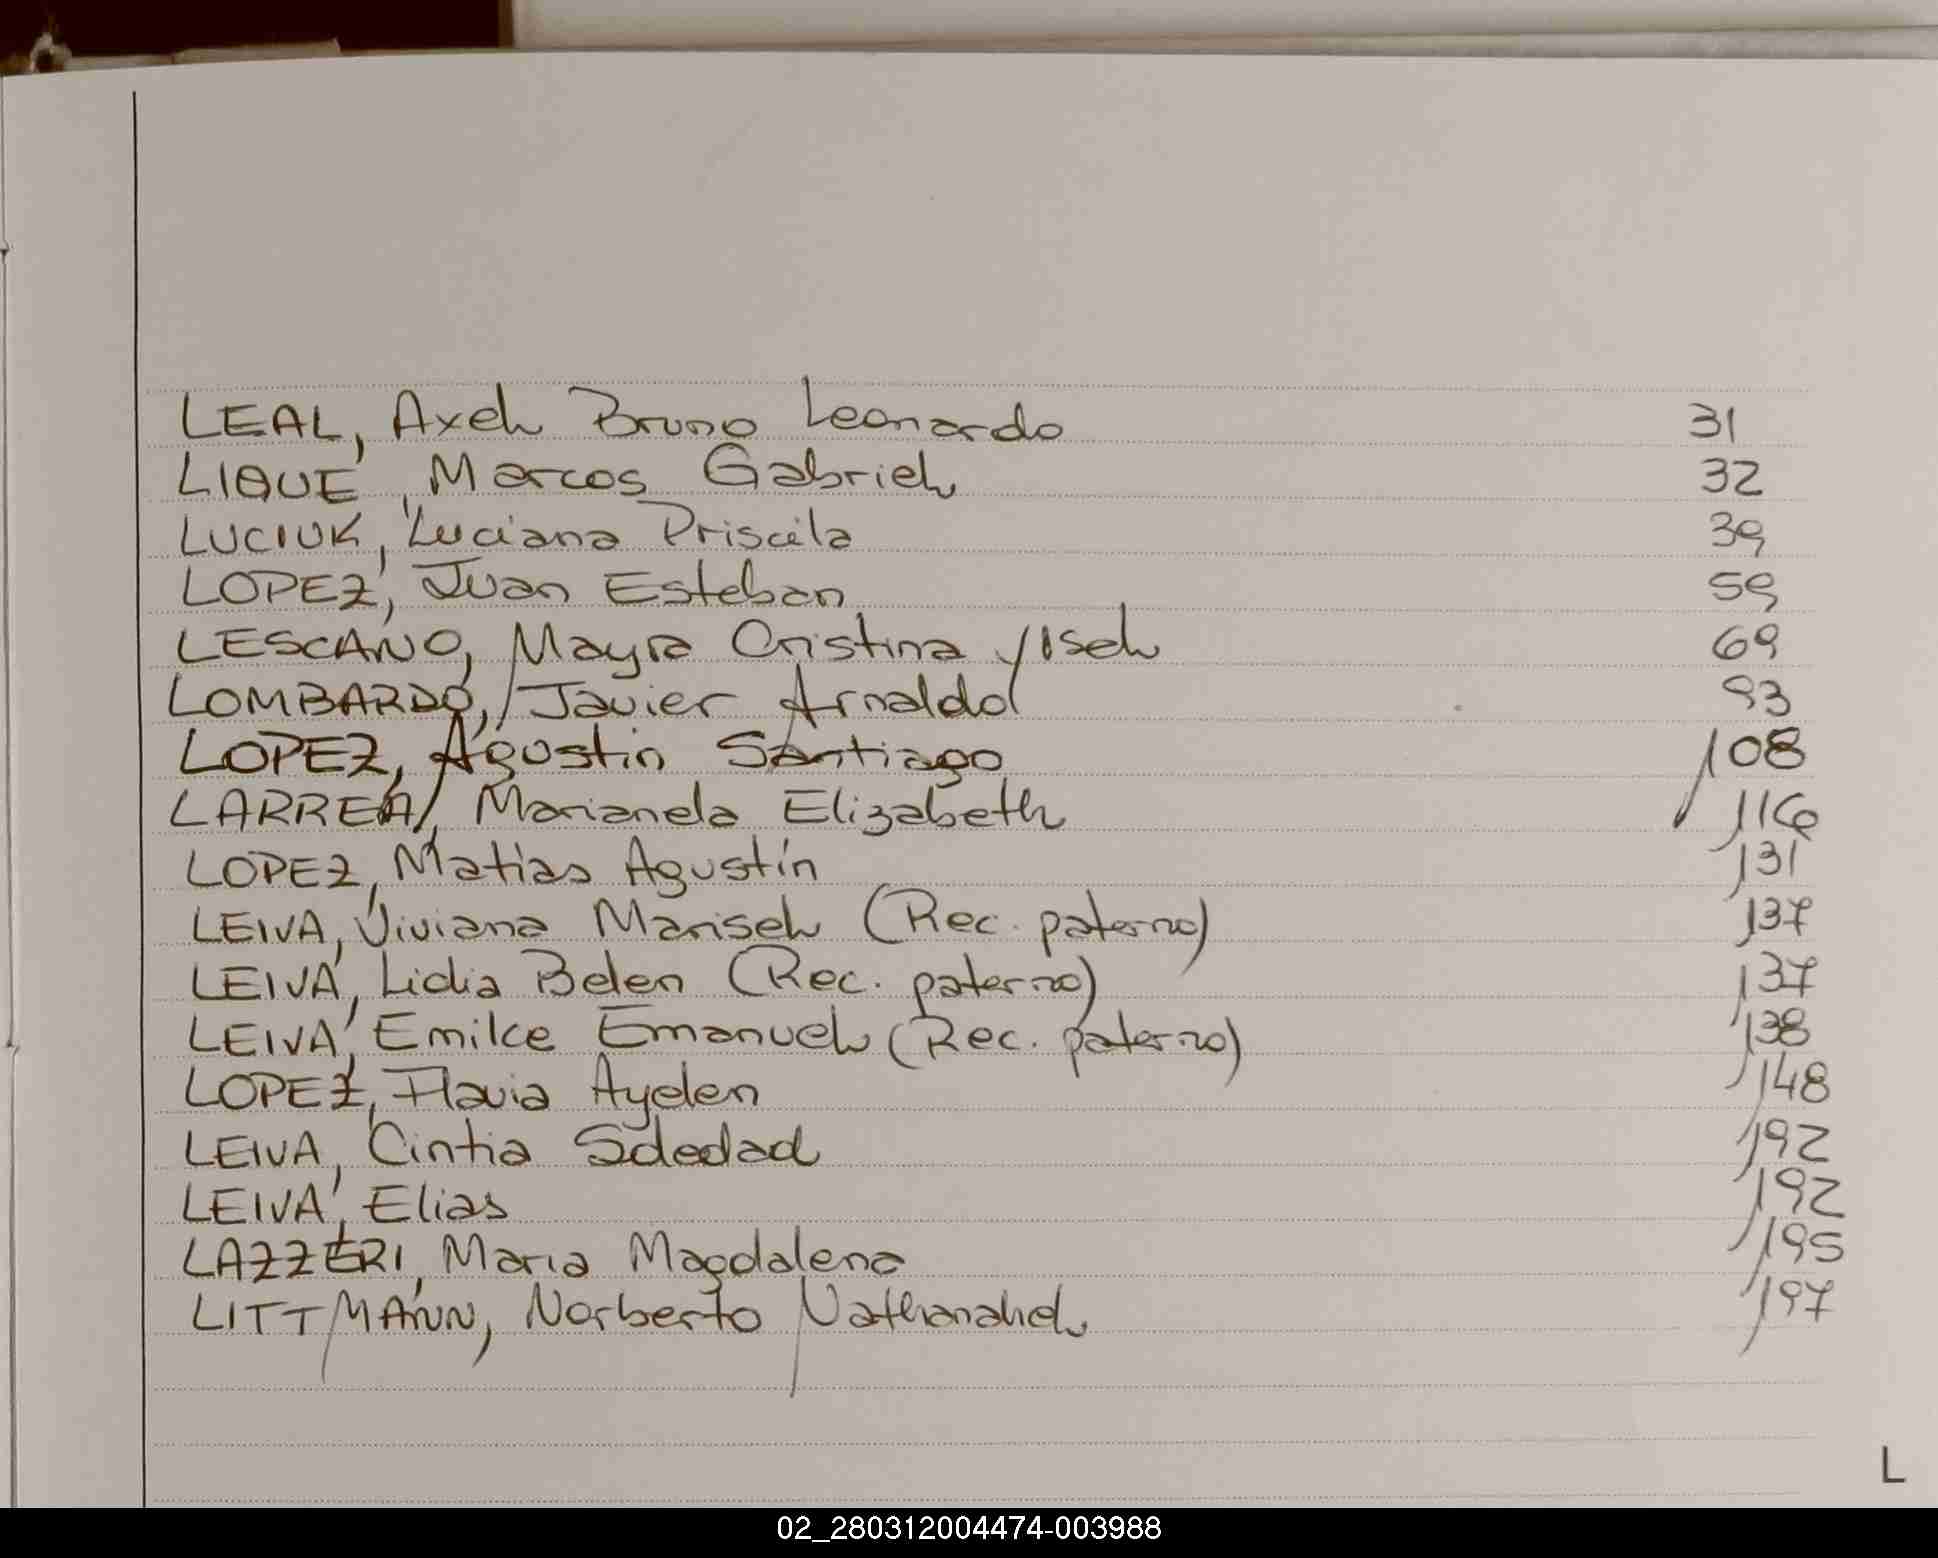 LEAL, Axel Bruno Leonardo 31
LIQUE, Marcos Gabriel 32
LUCIUK, Luciana Priscila 39
LOPEZ, Juan Esteban 59
LESCANO, Mayra Cristina Yisel 69
LOMBARDO, Javier Arnaldo 93
LOPEZ, Agustin Santiago 108
LARREA, Marianela Elizabeth 116
LOPEZ, Matias Agustín 131
LEIVA, Viviana Marisel (Rec. paterno) 137
LEIVA, Lidia Belen (Rec. paterno) 137
LEIVA, Emilce Emanuel (Rec. paterno) 138
LOPEZ, Flavia Ayelen 148
LEIVA, Cintia Soledad 192
LEIVA, Elias 192
LAZZERI, Maria Magdalena 195
LITTMANN, Norberto Nathanahel 197
L
02_280312004474-003988